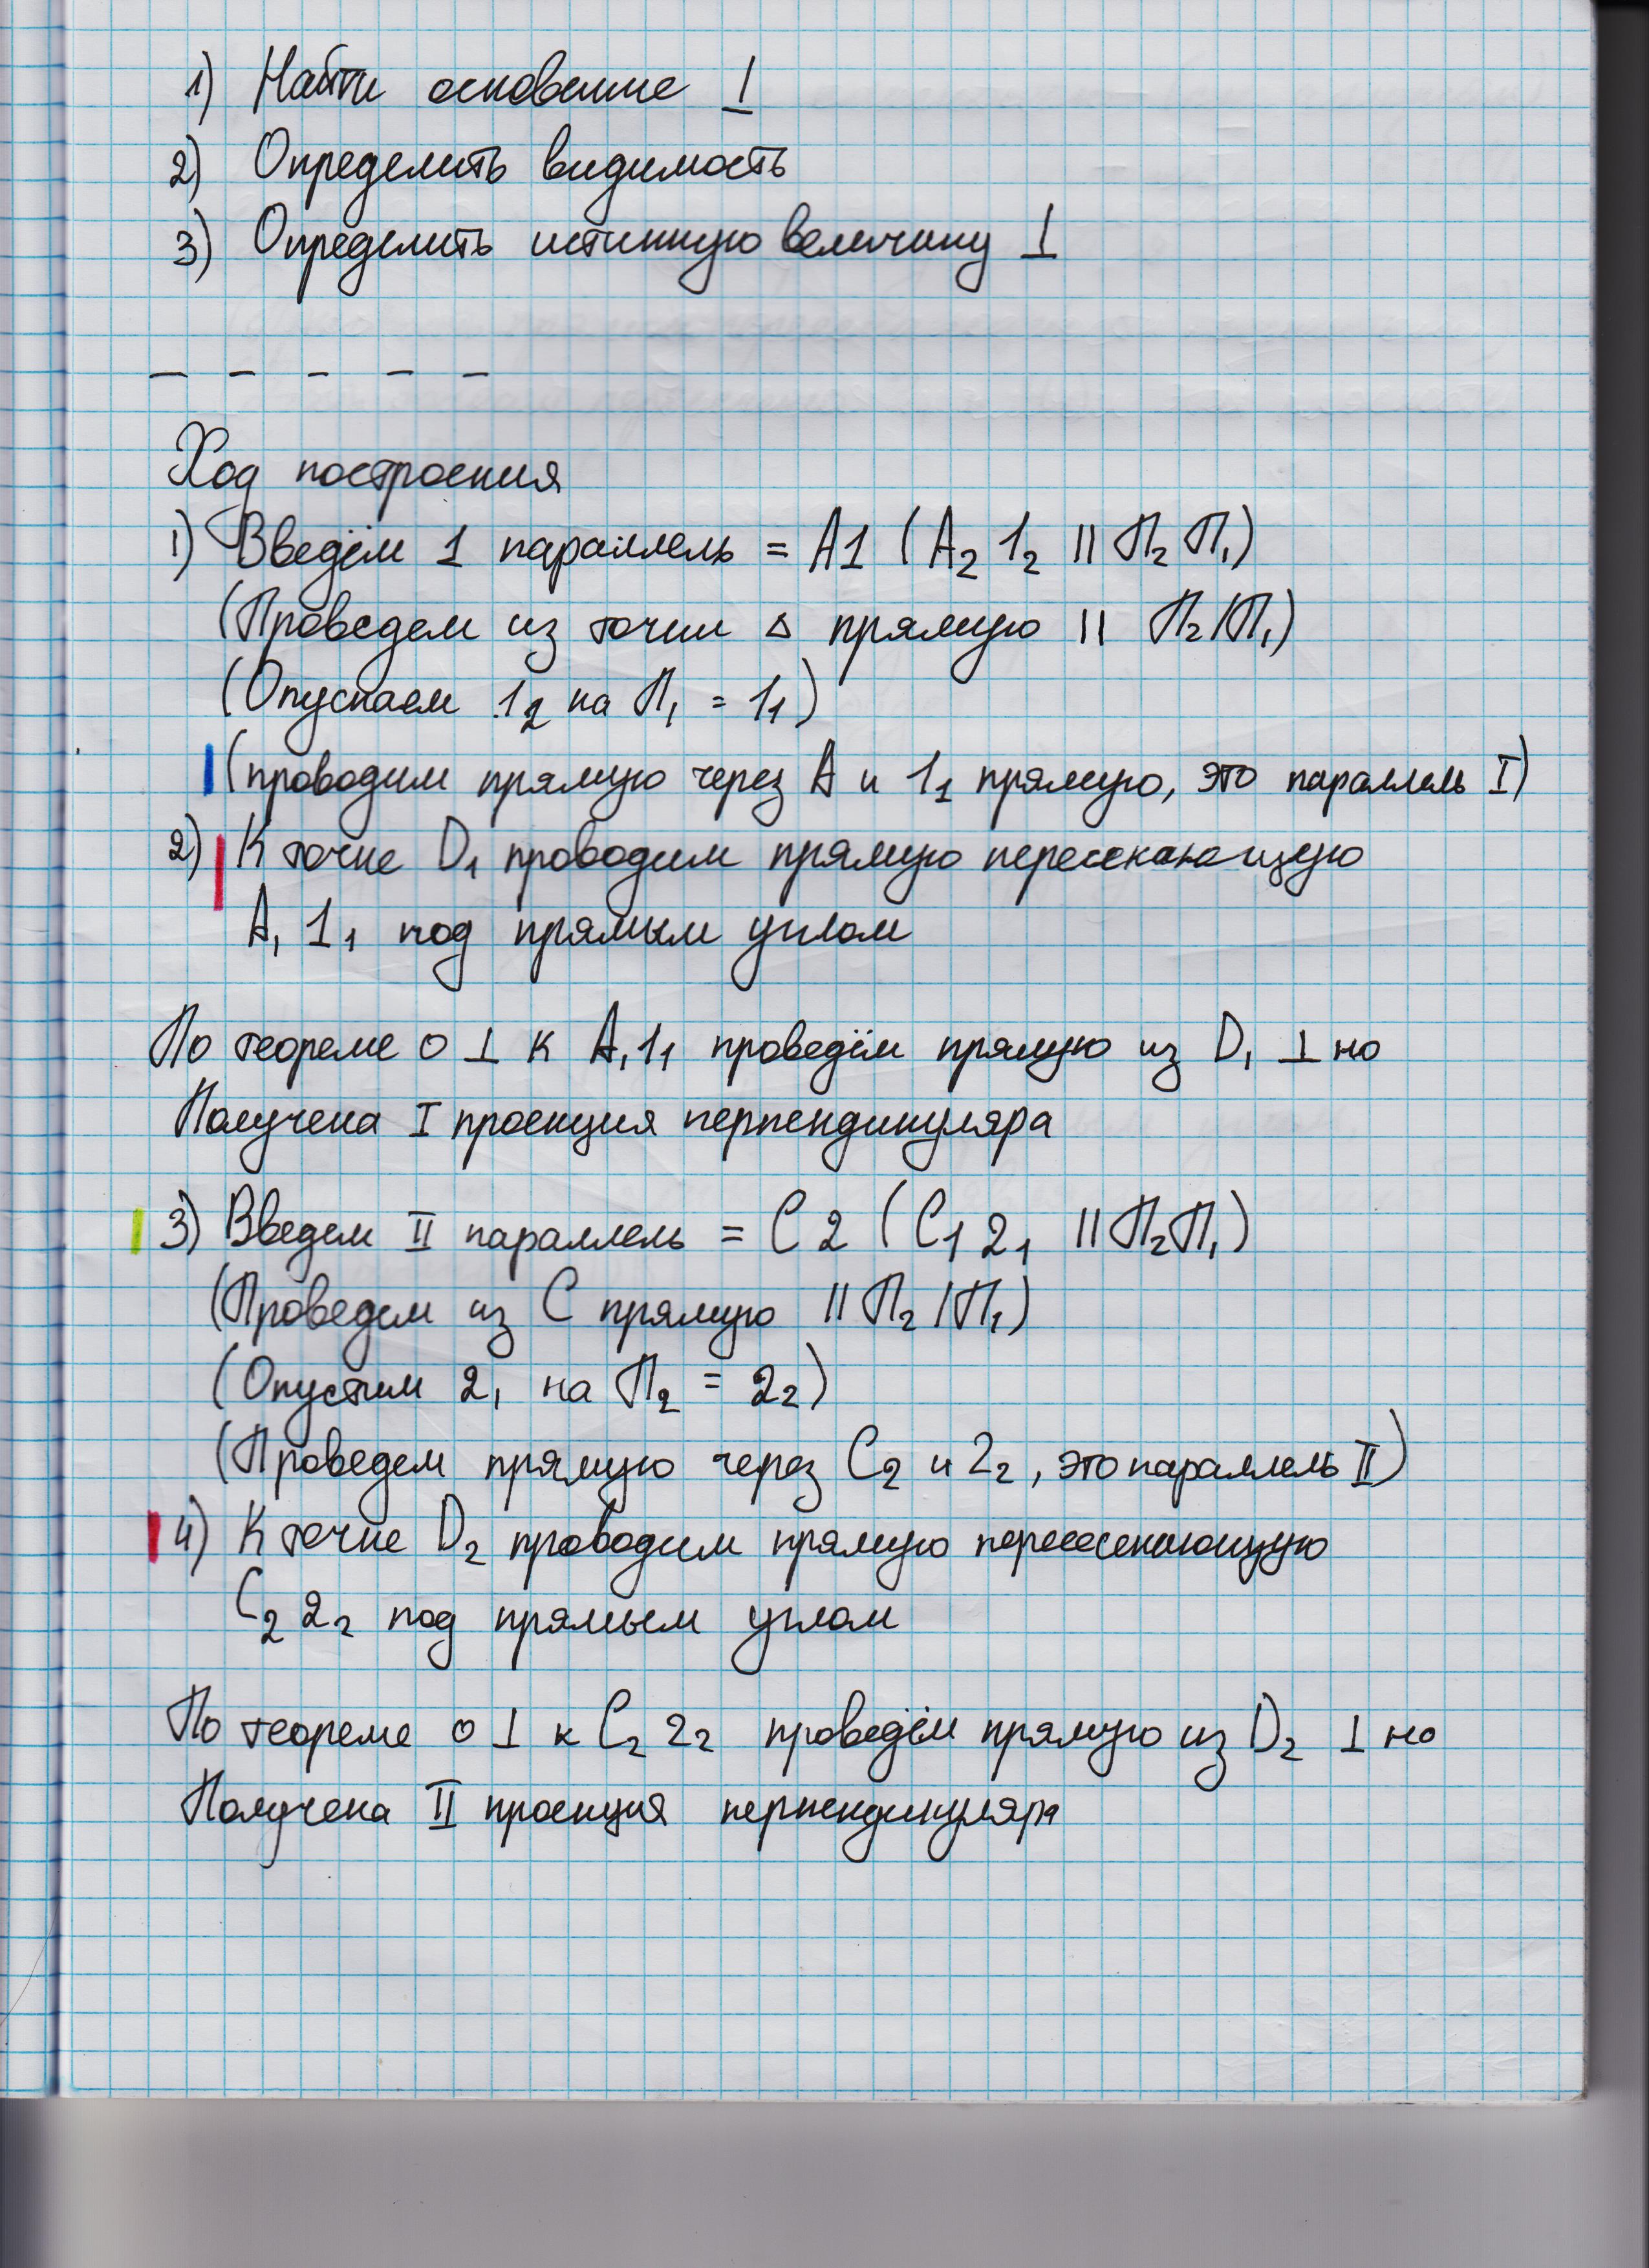 1) Найти основание ⊥
2) Определить видимость
3) Определить истинную величину ⊥
– – – – –
Ход построения
1) Введём 1 параллель = A1 (A₂ 1₂ || П₂ П₁)
(Проведем из точки Δ прямую || П₂/П₁)
(Опускаем 1₂ на П₁ = 1₁)
(проводим прямую через A и 1₁ прямую, это параллель I)
2) К точке D₁ проводим прямую пересекающую
A₁ 1₁ под прямым углом
По теореме о ⊥ к A₁1₁ проведём прямую из D₁ ⊥ но
Получена I проекция перпендикуляра
3) Введем II параллель = C2 (C₁ 2₁ || П₂П₁)
(Проведем из C прямую || П₂/П₁)
(Опустим 2₁ на П₂ = 2₂)
(Проведем прямую через C₂ и 2₂, это параллель II)
4) К точке D₂ проводим прямую пересекающую
C₂ 2₂ под прямым углом
По теореме о ⊥ к C₂ 2₂ проведём прямую из D₂ ⊥ но
Получена II проекция перпендикуляра